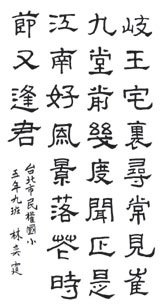 岐王宅裏尋常見崔
九堂前幾度聞正是
江南好風景落花時
節又逢君
台北市民權國小
五年九班 林奕霆